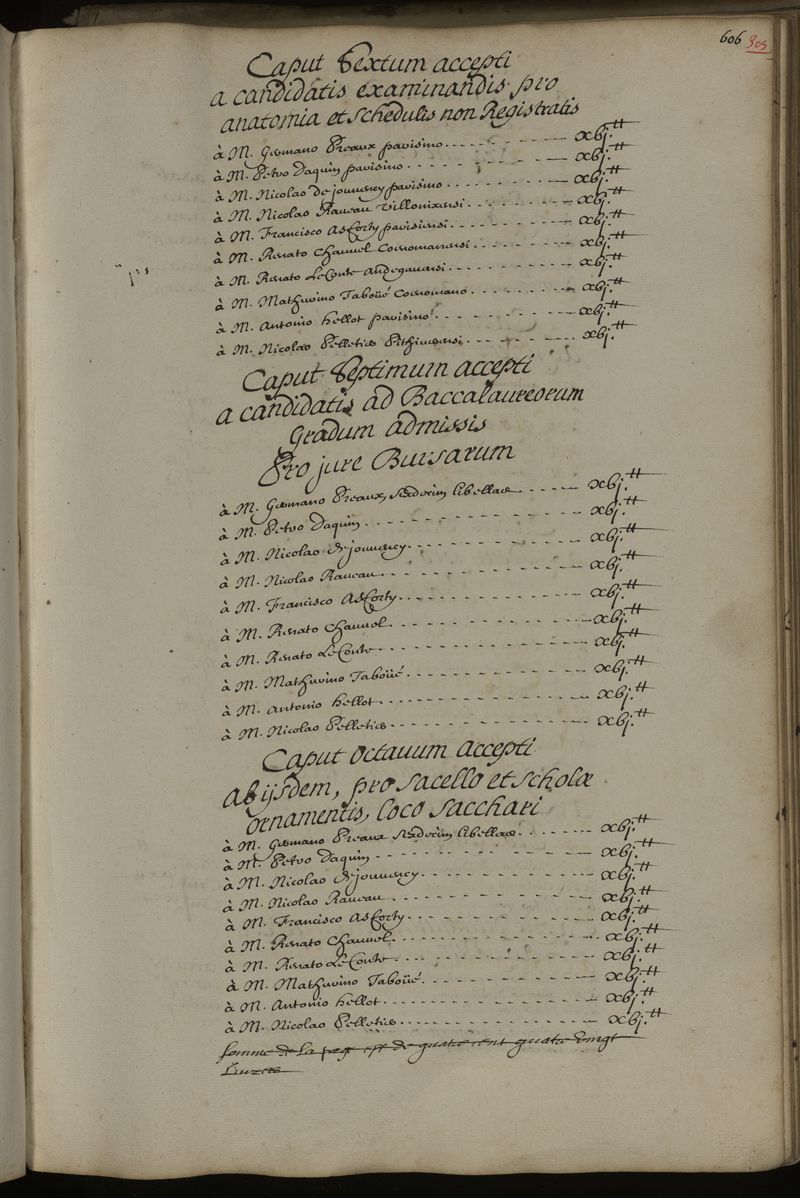 606 305
Caput Sextum accepti
a candidatis examinandis pro
anatomia et schedulis non Registratis
à M. Germano Preaux parisino xbj.tt
à M. Petro Daquin parisino xbj.tt
à M. Nicolao de jouvency parisino xbj.tt
à M. Nicolao Raveau xbj.tt
à M. Francisco Ascorty parisiensi xbj.tt
à M. Renato Chauvel Coenomanensi xbj.tt
à M. Renato LeConte Andegavensi xbj.tt
à M. Mathurino Taboüé Coenomano xbj.tt
à M. Antonio hellot parisino xbj.tt
à M. Nicolao Pelletier Pithiverensi xbj.tt
Caput Septimum accepti
a candidatis ad Baccalaureorum
Gradum admissis
Pro jure Bursarum
à M. Germano Preaux, sexdecim libellae xbj.tt
à M. Petro Daquin xbj.tt
à M. Nicolao de jouvency xbj.tt
à M. Nicolao Raveau xbj.tt
à M. Francisco Ascorty xbj.tt
à M. Renato Chauvel xbj.tt
à M. Renato LeConte xbj.tt
à M. Mathurino Taboüé xbj.tt
à M. Antonio hellot xbj.tt
à M. Nicolao Pelletier xbj.tt
Caput Octavum Accepti
Ab ijsdem, pro sacello et scholae
ornamentis, loco sacchari
à M. Germano Preaux sexdecim libellae xbj.tt
à M. Petro Daquin xbj.tt
à M. Nicolao de jouvency xbj.tt
à M. Nicolao Raveau xbj.tt
à M. Francisco Ascorty xbj.tt
à M. Renato Chauvel xbj.tt
à M. Renato LeConte xbj.tt
à M. Mathurino Taboüé xbj.tt
à M. Antonio hellot xbj.tt
à M. Nicolao Pelletier xbj.tt
somme de la page est de quatre cent quatre vingt
Livres